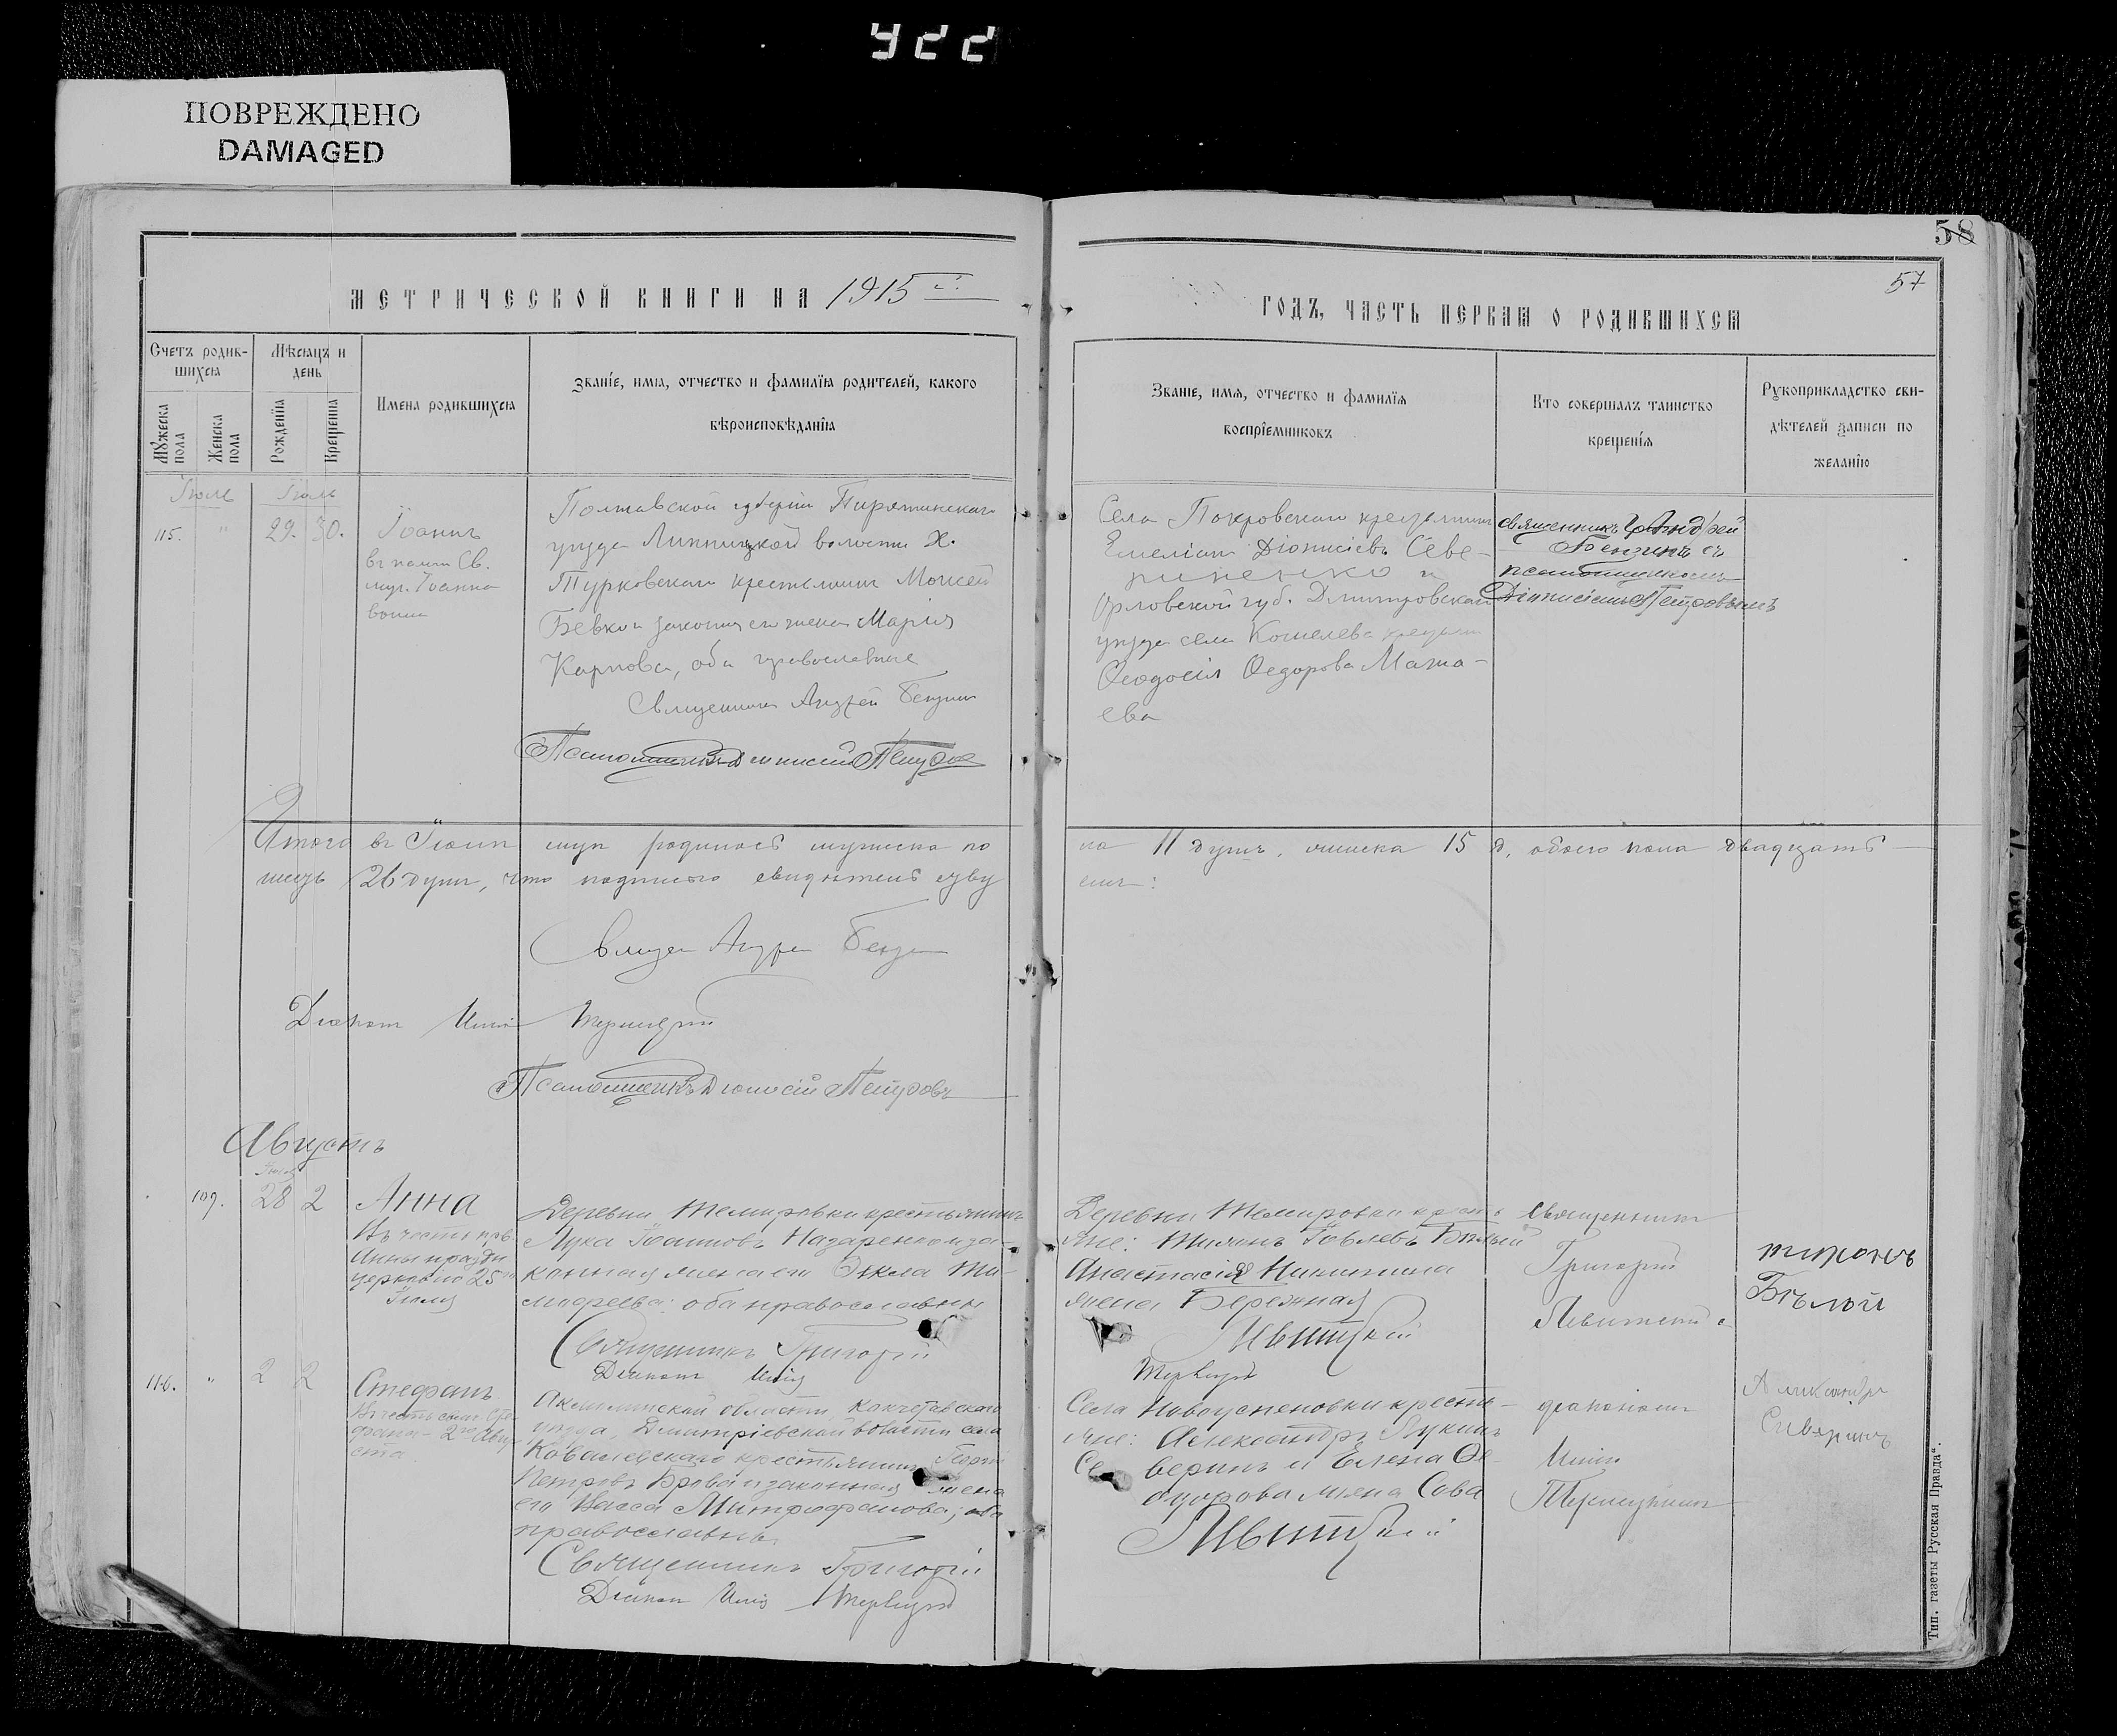 922
ПОВРЕЖДЕНО
DAMAGED
58
57
МЕТРИЧЕСКОЙ КНИГИ НА 1915 г.
ГОДЪ, ЧАСТЬ ПЕРВАЯ О РОДИВШИХСЯ
Счетъ родив-
шихся
Мѣсяцъ и
день
Мужеска пола
Женска пола
Рожденія
Крещенія
Имена родившихся
Званіе, имя, отчество и фамилія родителей, какого
вѣроисповѣданія
Званіе, имя, отчество и фамилія
воспріемниковъ
Кто совершалъ таинство
крещенія
Рукоприкладство сви-
дѣтелей записи по
желанію
Іюль Іюль
115. " 29. 30.
Іоаннъ
въ память Св.
муч. Іоанна
воина
Полтавской губерніи Пирятинскаго
уѣзда волости х.
Турковскаго крестьянинъ Моисей
Бевко и законная его жена Марія
Карпова, оба православные
Священникъ Андрей Бендинъ
Псаломщикъ Діонисій Петровъ
Села Покровскаго крестьянинъ
Емеліанъ Діонисіевъ Севе-
риненко и
Орловской губ. Дмитровскаго
уѣзда села Кошелева
Ѳеодосія Ѳедорова Мама-
ева
священникъ Андрей
Бендинъ съ
псаломщикомъ
Діонисіемъ Петровымъ
Итого въ Іюлѣ мцѣ родилось мужска по
ла 11 душъ, женска 15 д. обоего пола двадцать
шесть 26 душъ, что подписью свидѣтельству
емъ:
Андрей Бендинъ
Діаконъ
Псаломщикъ Діонисій Петровъ
Августъ
Іюля
109. 28 2
Анна
Въ честь прав.
Анны праздн.
церковью 25го
Іюля
Деревни Темировки крестьянинъ
Лука Іоанновъ Назаренко и за-
конная жена его Ѳекла Ти-
моѳеева: оба православны
Священникъ Григорій
Діаконъ
Деревни Темировки кресть
яне: Тихонъ Бѣлый
Анастасія Никитина
жена Бережная
Священникъ
Григорій
тихонъ
Бѣлый
116. " 2 2
Стефанъ
Въ честь Сте-
фана 2го Авгу-
ста
Акмолинской области Кокчетавскаго
уѣзда, Дмитріевской волости села
Ковалевскаго крестьянинъ Георгій
Петровъ Брова и законная жена
его Васса Митрофанова; оба
православны.
Священникъ Григорій
Діаконъ
Села Новоуспеновки кресть-
яне: Александръ Лукинъ
Северинъ и Елена Ѳе-
дорова жена Сава
діакономъ
Александръ
Сиверинъ
Тип. газеты „Русская Правда“.